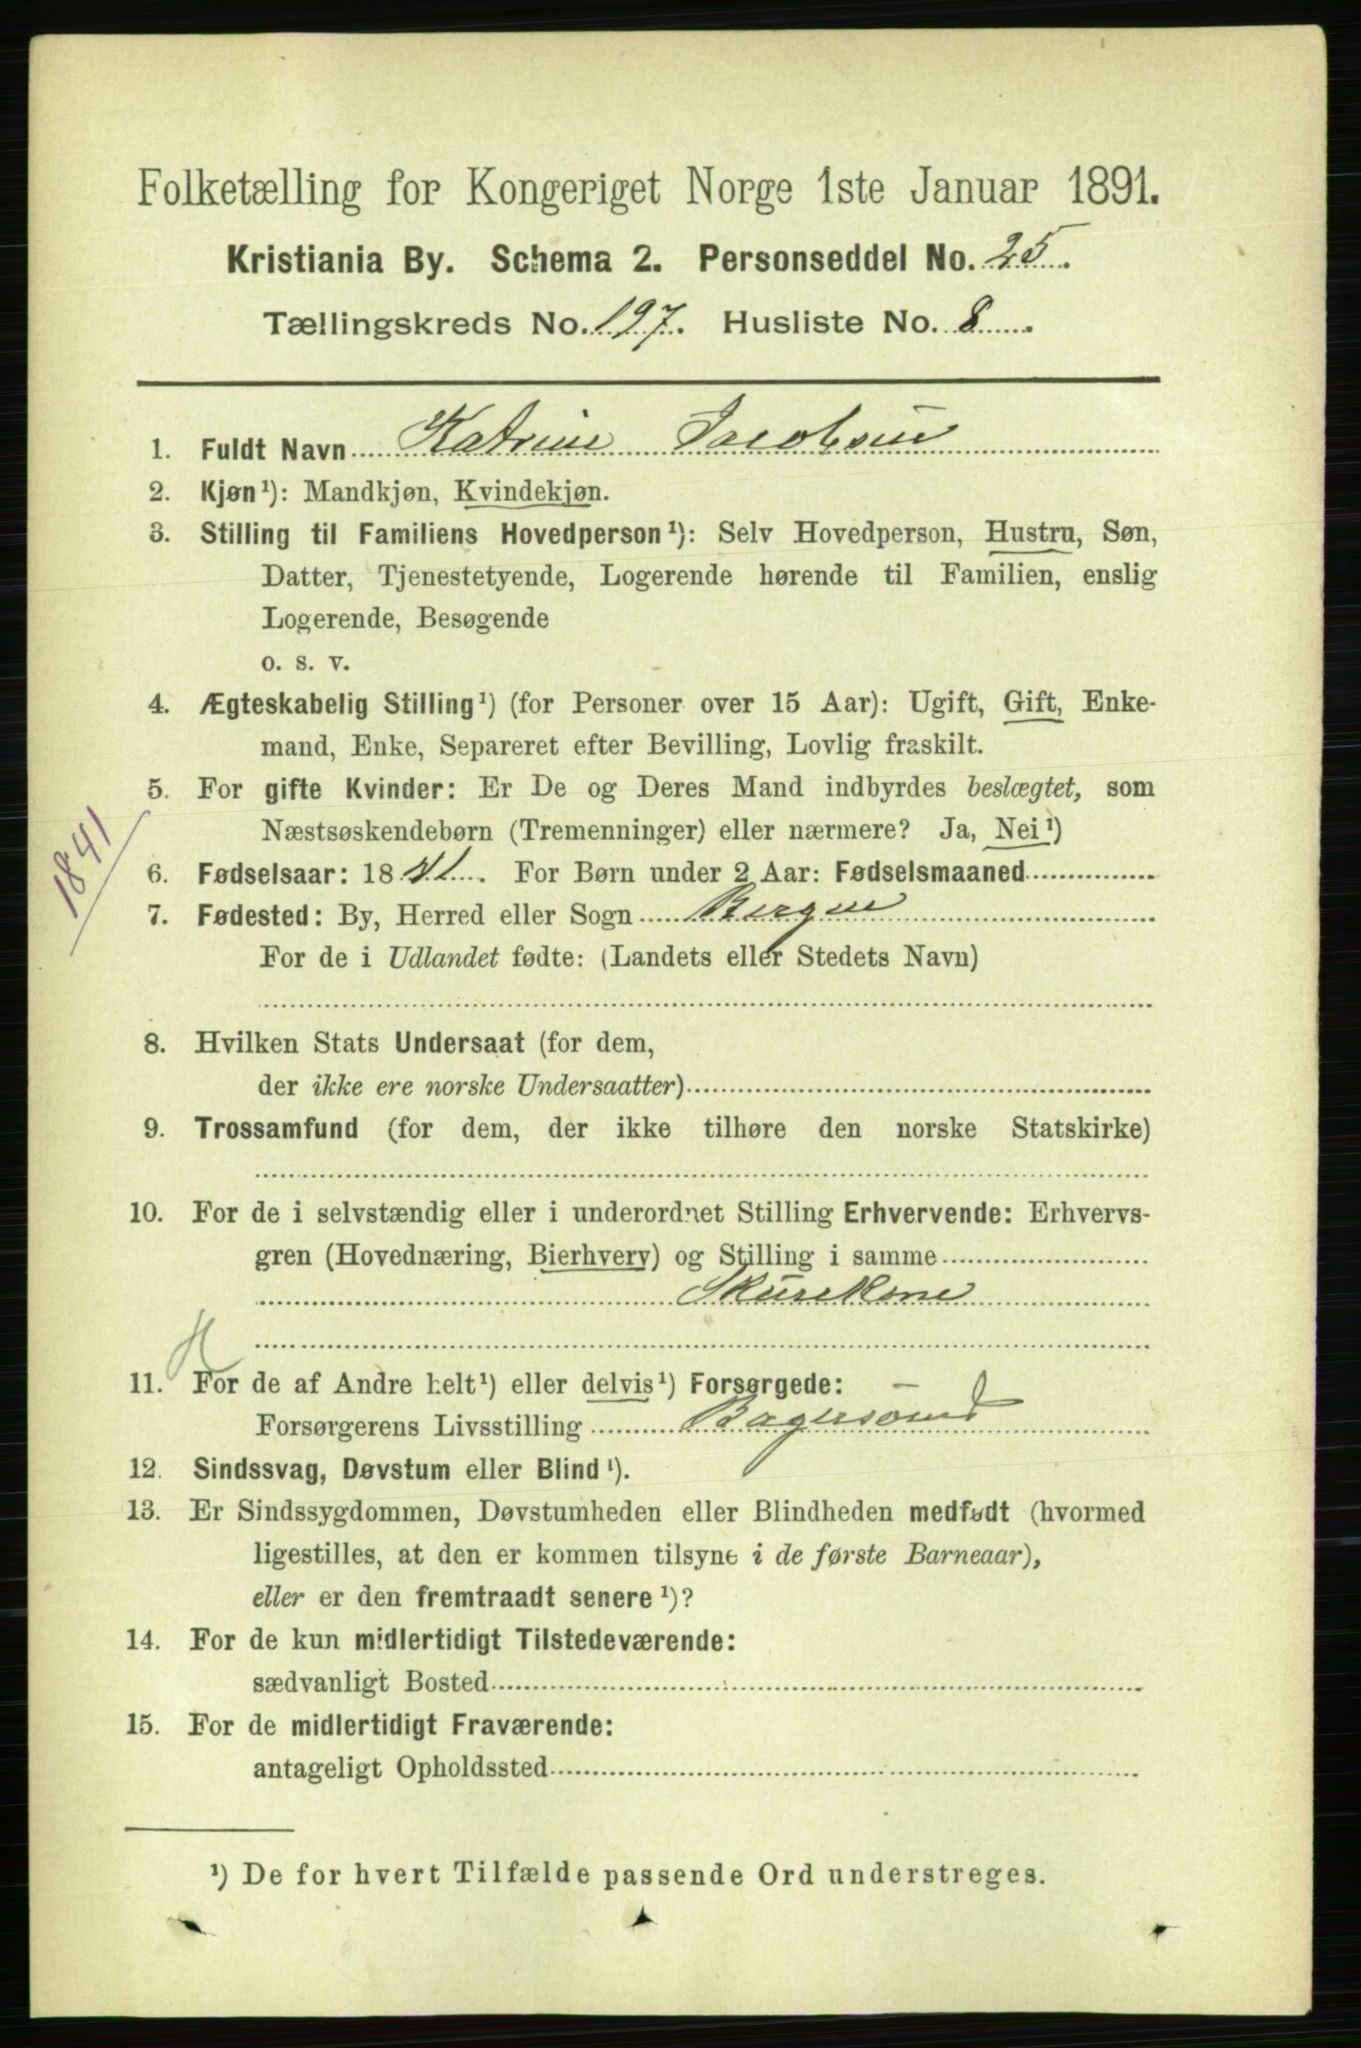 Folketælling for Kongeriget Norge 1ste Januar 1891.
Kristiania By. Schema 2. Personseddel No. 25.
Tællingskreds No. 197. Husliste No. 8.
1. Fuldt Navn Katrine Jacobsen
2. Kjøn¹): Mandkjøn, Kvindekjøn.
3. Stilling til Familiens Hovedperson¹): Selv Hovedperson, Hustru, Søn,
Datter, Tjenestetyende, Logerende hørende til Familien, enslig
Logerende, Besøgende
o. s. v.
4. Ægteskabelig Stilling¹) (for Personer over 15 Aar): Ugift, Gift, Enke-
mand, Enke, Separeret efter Bevilling, Lovlig fraskilt.
5. For gifte Kvinder: Er De og Deres Mand indbyrdes beslægtet, som
Næstsøskendebørn (Tremenninger) eller nærmere? Ja, Nei¹)
1841
6. Fødselsaar: 1841. For Børn under 2 Aar: Fødselsmaaned
7. Fødested: By, Herred eller Sogn Bergen
For de i Udlandet fødte: (Landets eller Stedets Navn)
8. Hvilken Stats Undersaat (for dem,
der ikke ere norske Undersaatter)
9. Trossamfund (for dem, der ikke tilhøre den norske Statskirke)
10. For de i selvstændig eller i underordnet Stilling Erhvervende: Erhvervs-
gren (Hovednæring, Bierhverv) og Stilling i samme
Skurekone
H
11. For de af Andre helt¹) eller delvis¹) Forsørgede:
Forsørgerens Livsstilling Bagersvend
12. Sindssvag, Døvstum eller Blind¹).
13. Er Sindssygdommen, Døvstumheden eller Blindheden medfødt (hvormed
ligestilles, at den er kommen tilsyne i de første Barneaar),
eller er den fremtraadt senere¹)?
14. For de kun midlertidigt Tilstedeværende:
sædvanligt Bosted
15. For de midlertidigt Fraværende:
antageligt Opholdssted
¹) De for hvert Tilfælde passende Ord understreges.